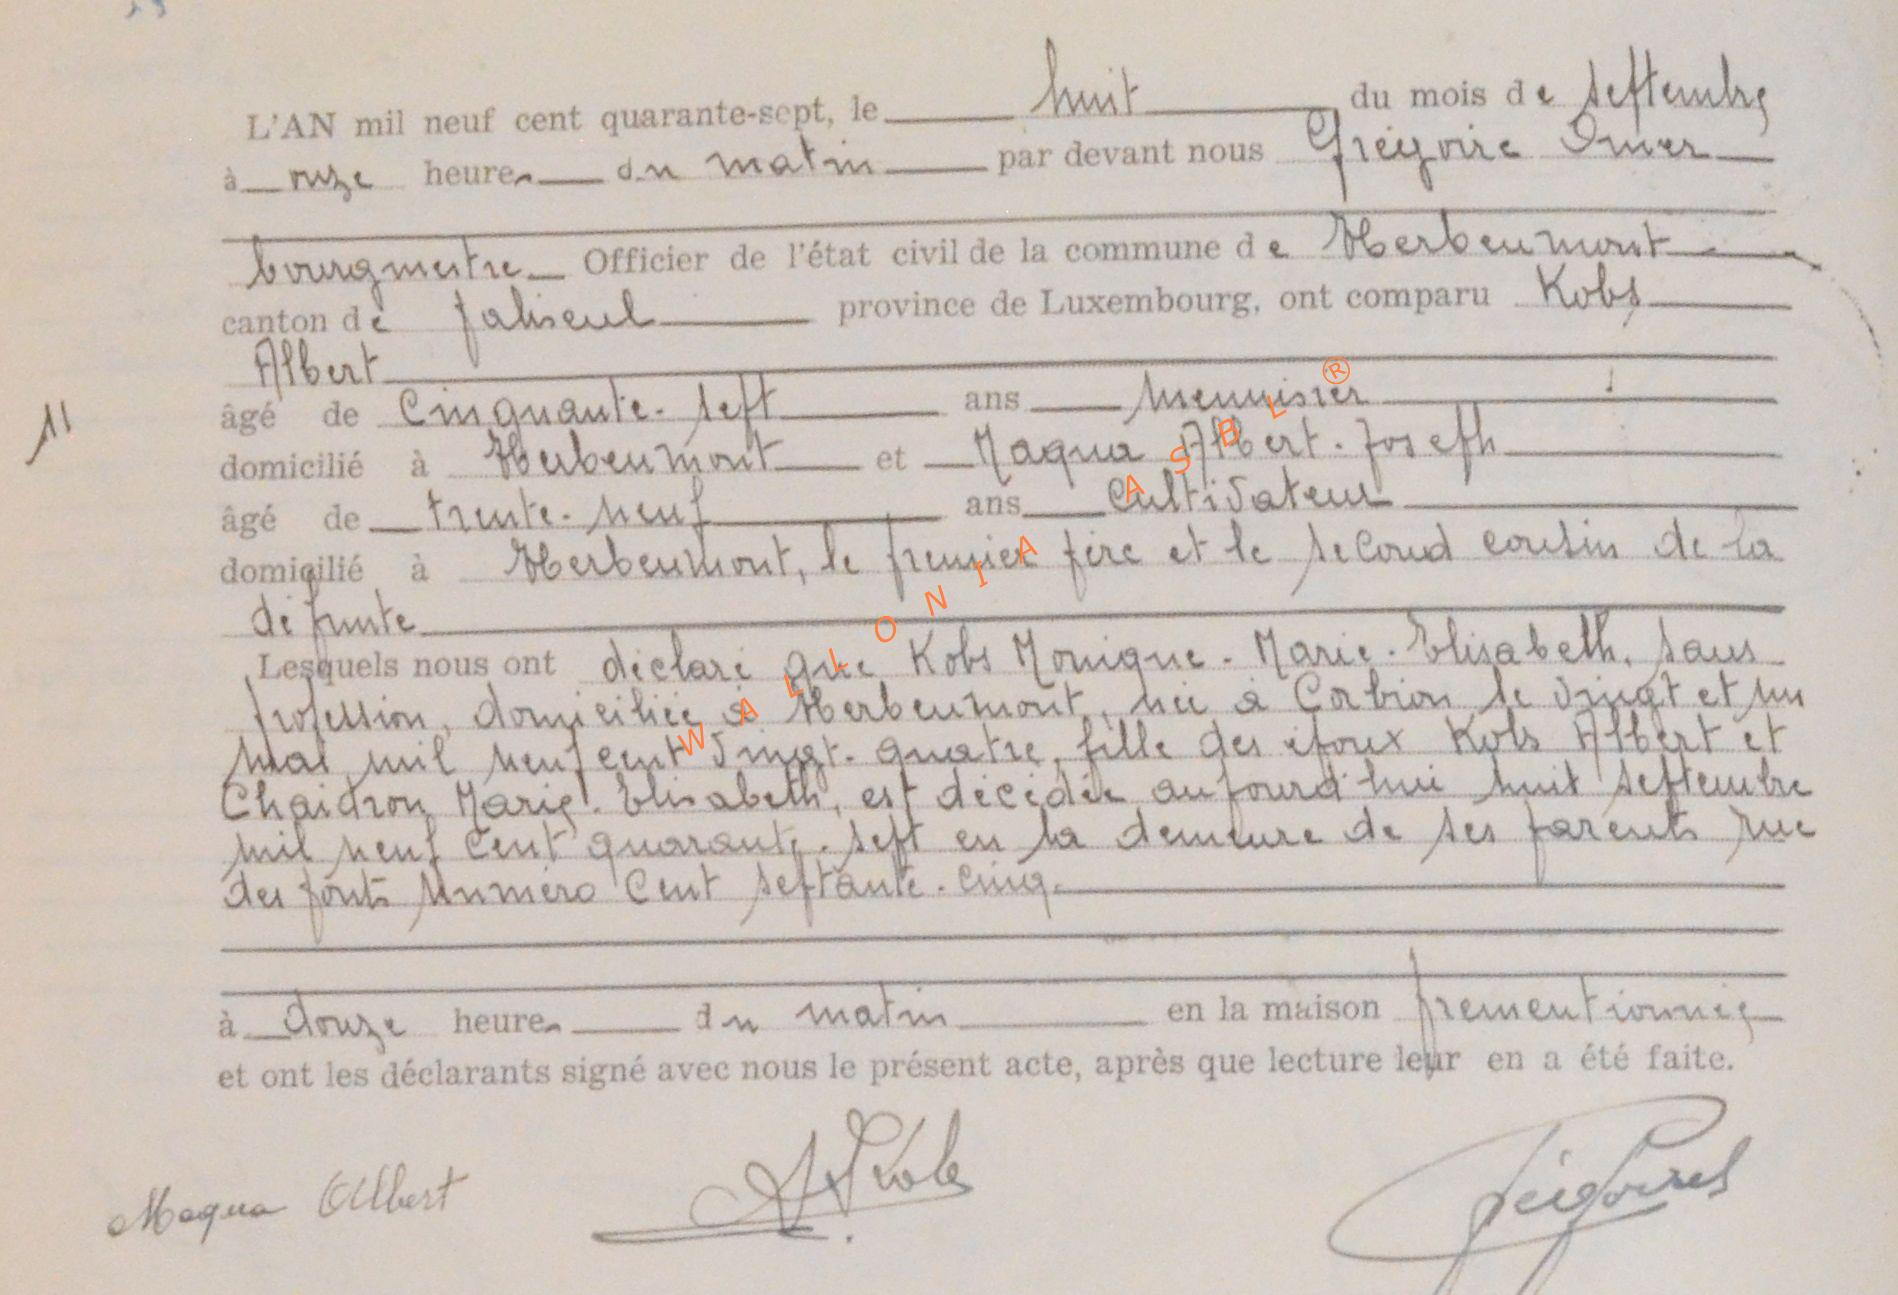 L'AN mil neuf cent quarante-sept, le huit du mois de septembre
à onze heures du matin par devant nous Grégoire Omer
bourgmestre Officier de l'état civil de la commune de Herbeumont
canton de Paliseul province de Luxembourg, ont comparu Kobs
Albert
11
âgé de cinquante-sept ans menuisier
domicilié à Herbeumont et Maqua Albert-Joseph
âgé de trente-neuf ans cultivateur
domicilié à Herbeumont, le premier père et le second cousin de la
défunte
Lesquels nous ont déclaré que Kobs Monique-Marie-Elisabeth, sans
profession, domiciliée à Herbeumont, née à Corbion le vingt et un
mai mil neuf cent vingt-quatre, fille des époux Kobs Albert et
Chaidron Marie-Elisabeth, est décédée aujourd'hui huit septembre
mil neuf cent quarante-sept en la demeure de ses parents rue
des ponts numéro cent septante-cinq.
à douze heures du matin en la maison prementionnée
et ont les déclarants signé avec nous le présent acte, après que lecture leur en a été faite.
Maqua Albert Kobs Grégoire
WALLONIA ASBL ®